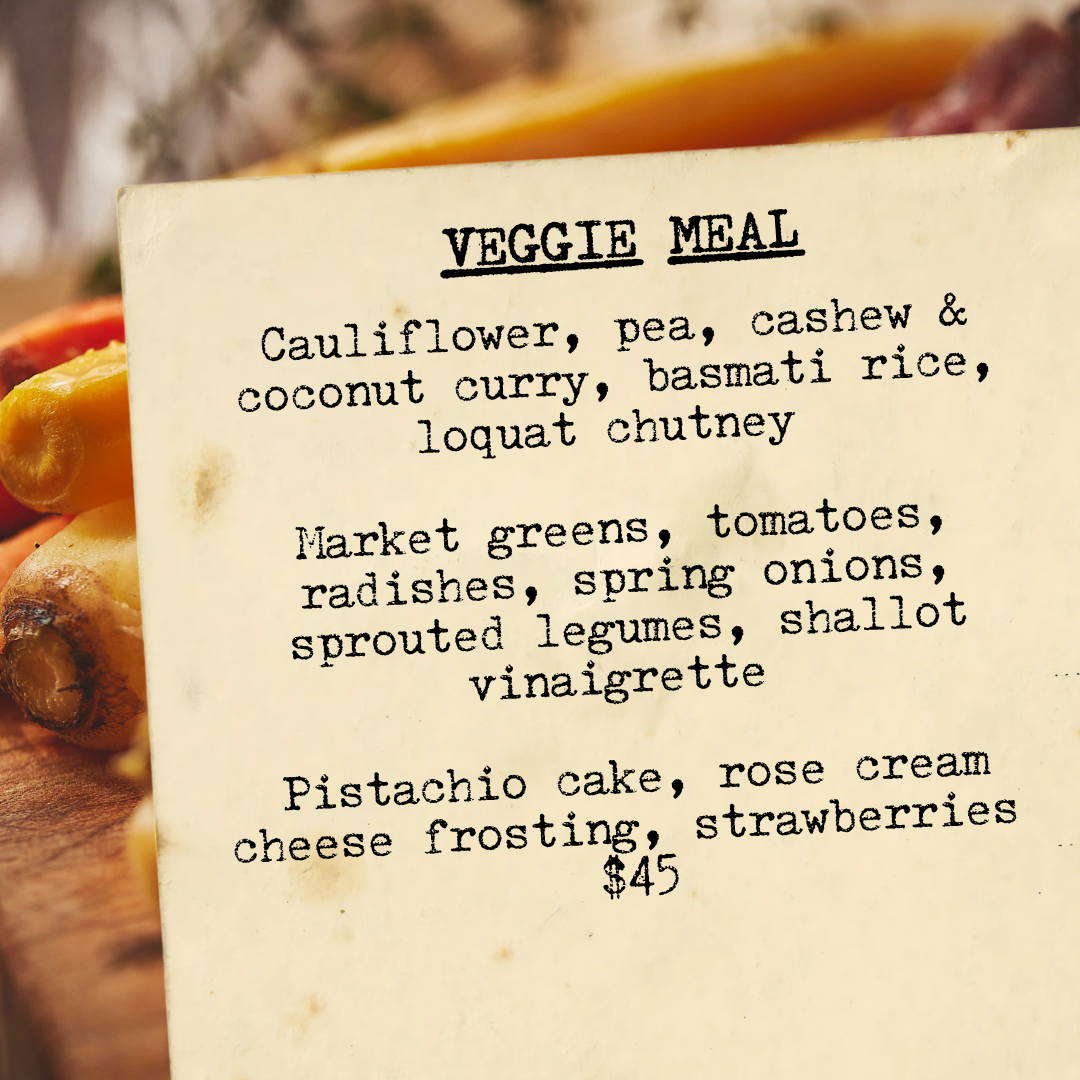 VEGGIE MEAL
Cauliflower, pea, cashew &
coconut curry, basmati rice,
loquat chutney
Market greens, tomatoes,
radishes, spring onions,
sprouted legumes, shallot
vinaigrette
Pistachio cake, rose cream
cheese frosting, strawberries
$45